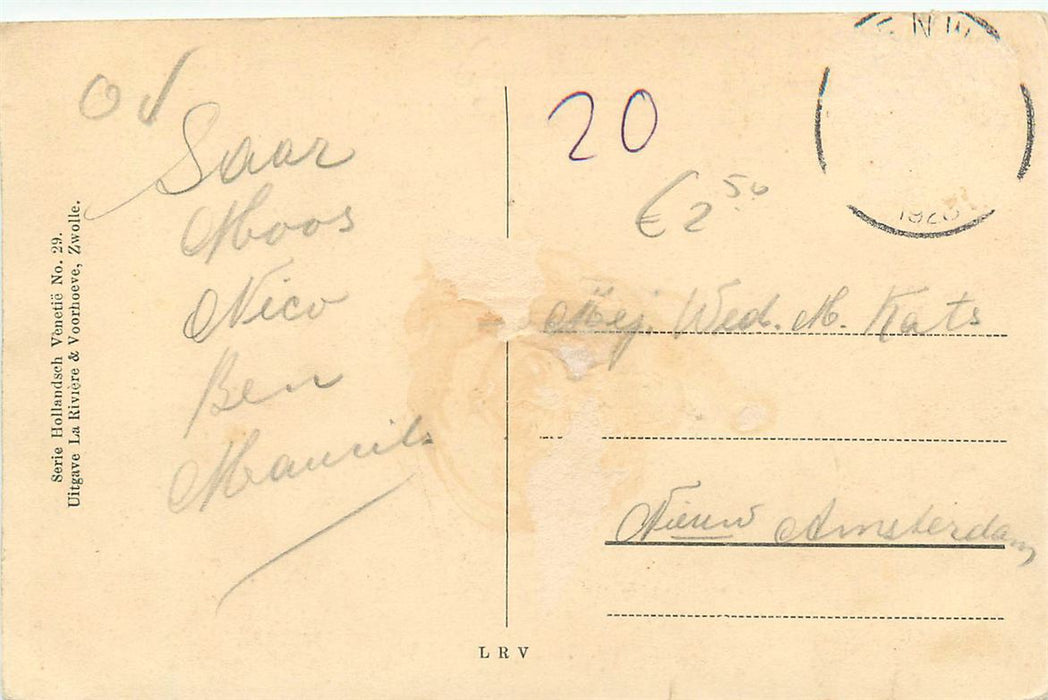 Saar
Moos
Nico
Ben
Maurits
20
€ 2 50
Mej. Wed. M. Kats
Nieuw Amsterdam
Serie Hollandsch Venetië No. 29.
Uitgave La Rivière & Voorhoeve, Zwolle.
L R V